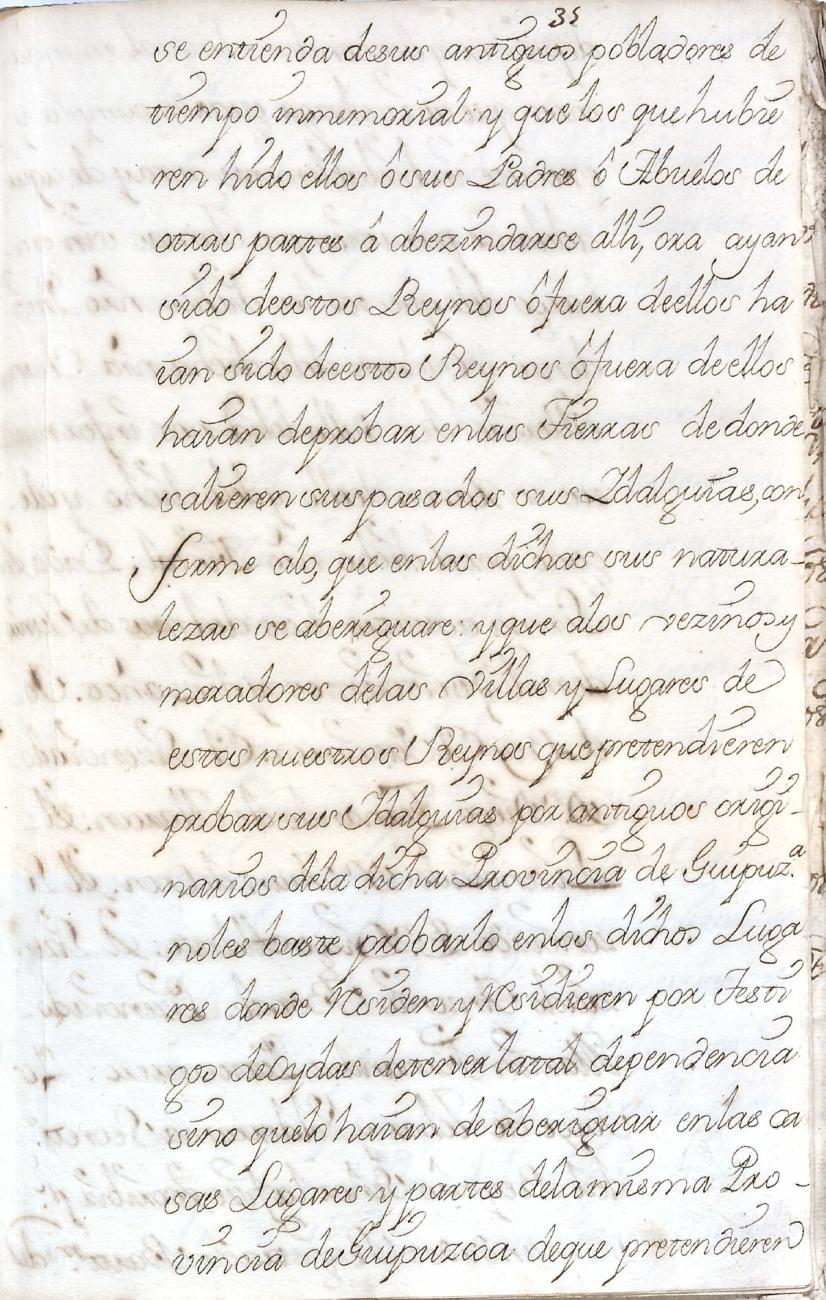 35
se entienda desus antiguos pobladores de
tiempo inmemorial y que los que hubie
ren hido ellos ô sus Padres ô Abuelos de
otras partes â abezindarse alli, ora ayan
sido deestos Reynos ô fuera deellos ha
ian sido deestos Reynos ô fuera de ellos
haian deprobar enlas Tierras de donde
salieren sus pasados sus Idalguias, con
forme alo, que enlas dichas sus natura-
lezas se aberiguare: y que alos vezinos y
moradores delas Villas y Lugares de
estos nuestros Reynos que pretendieren
probar sus Idalguias por antiguos origi-
narios dela dicha Provincia de Guipuz.ª
noles baste probarlo enlos dichos Luga
res donde Residen y Residieren por Testi
gos deOydas detener latal dependencia
sino quelo haian de aberiguar enlas ca
sas Lugares y partes delamisma Pro-
vincia deGuipuzcoa deque pretendieren